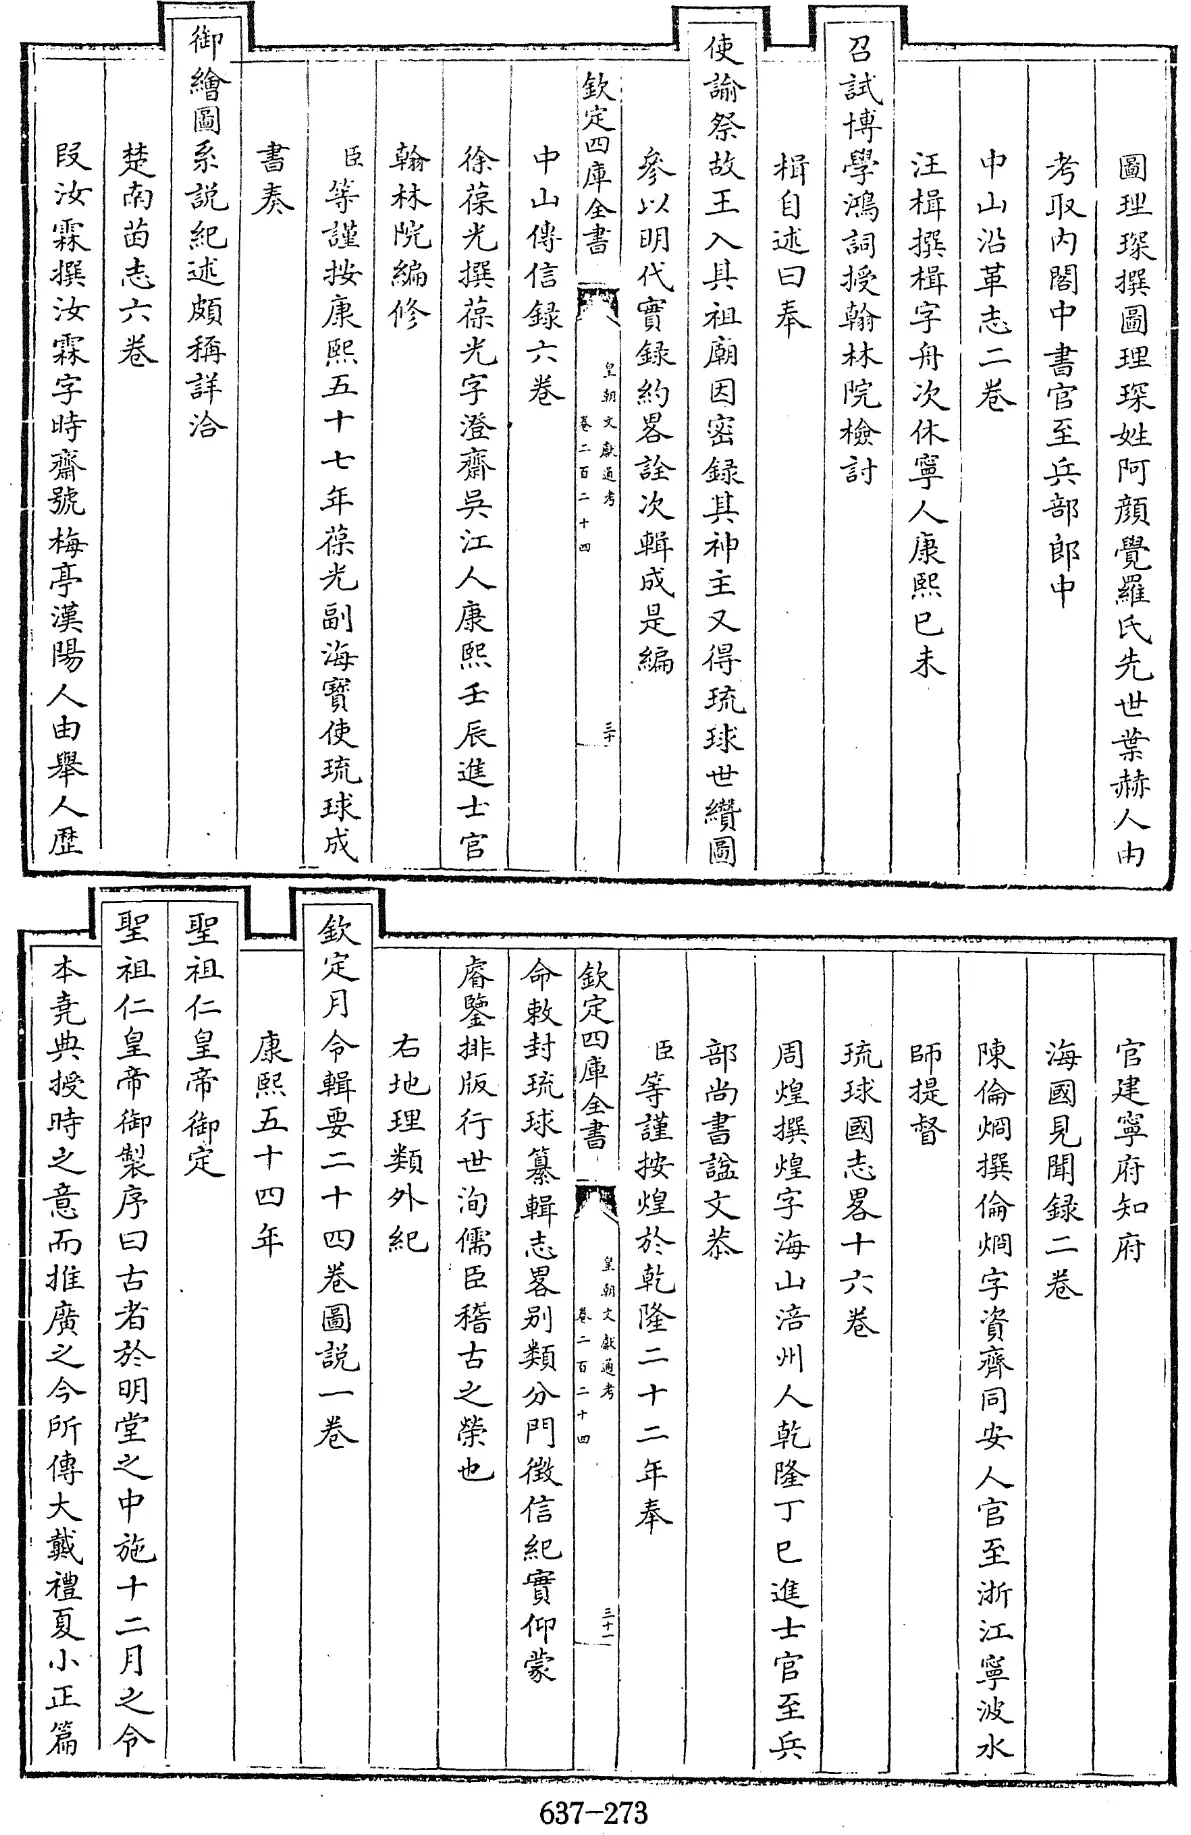 圖理琛撰圖理琛姓阿顔覺羅氏先世葉赫人由
考取内閣中書官至兵部郎中
中山沿革志二卷
汪楫撰楫字舟次休寧人康熙已未
召試博學鴻詞授翰林院檢討
楫自述曰奉
使諭祭故王入其祖廟因密録其神主又得琉球世纘圖
參以明代實録約畧詮次輯成是編
欽定四庫全書
皇朝文獻通考
卷二百二十四
三十
中山傳信録六卷
徐葆光撰葆光字澄齋吳江人康熙壬辰進士官
翰林院編修
臣等謹按康熙五十七年葆光副海寶使琉球成
書奏
御繪圖系説紀述頗稱詳洽
楚南苗志六卷
段汝霖撰汝霖字時齋號梅亭漢陽人由舉人歷
官建寧府知府
海國見聞録二卷
陳倫烱撰倫烱字資齊同安人官至浙江寧波水
師提督
琉球國志畧十六卷
周煌撰煌字海山涪州人乾隆丁巳進士官至兵
部尚書諡文恭
臣等謹按煌於乾隆二十二年奉
欽定四庫全書
皇朝文獻通考
卷二百二十四
三十一
命敕封琉球纂輯志畧别類分門徵信紀實仰蒙
睿鑒排版行世洵儒臣稽古之榮也
右地理類外紀
欽定月令輯要二十四卷圖説一卷
康熙五十四年
聖祖仁皇帝御定
聖祖仁皇帝御製序曰古者於明堂之中施十二月之令
本堯典授時之意而推廣之今所傳大戴禮夏小正篇
637-273